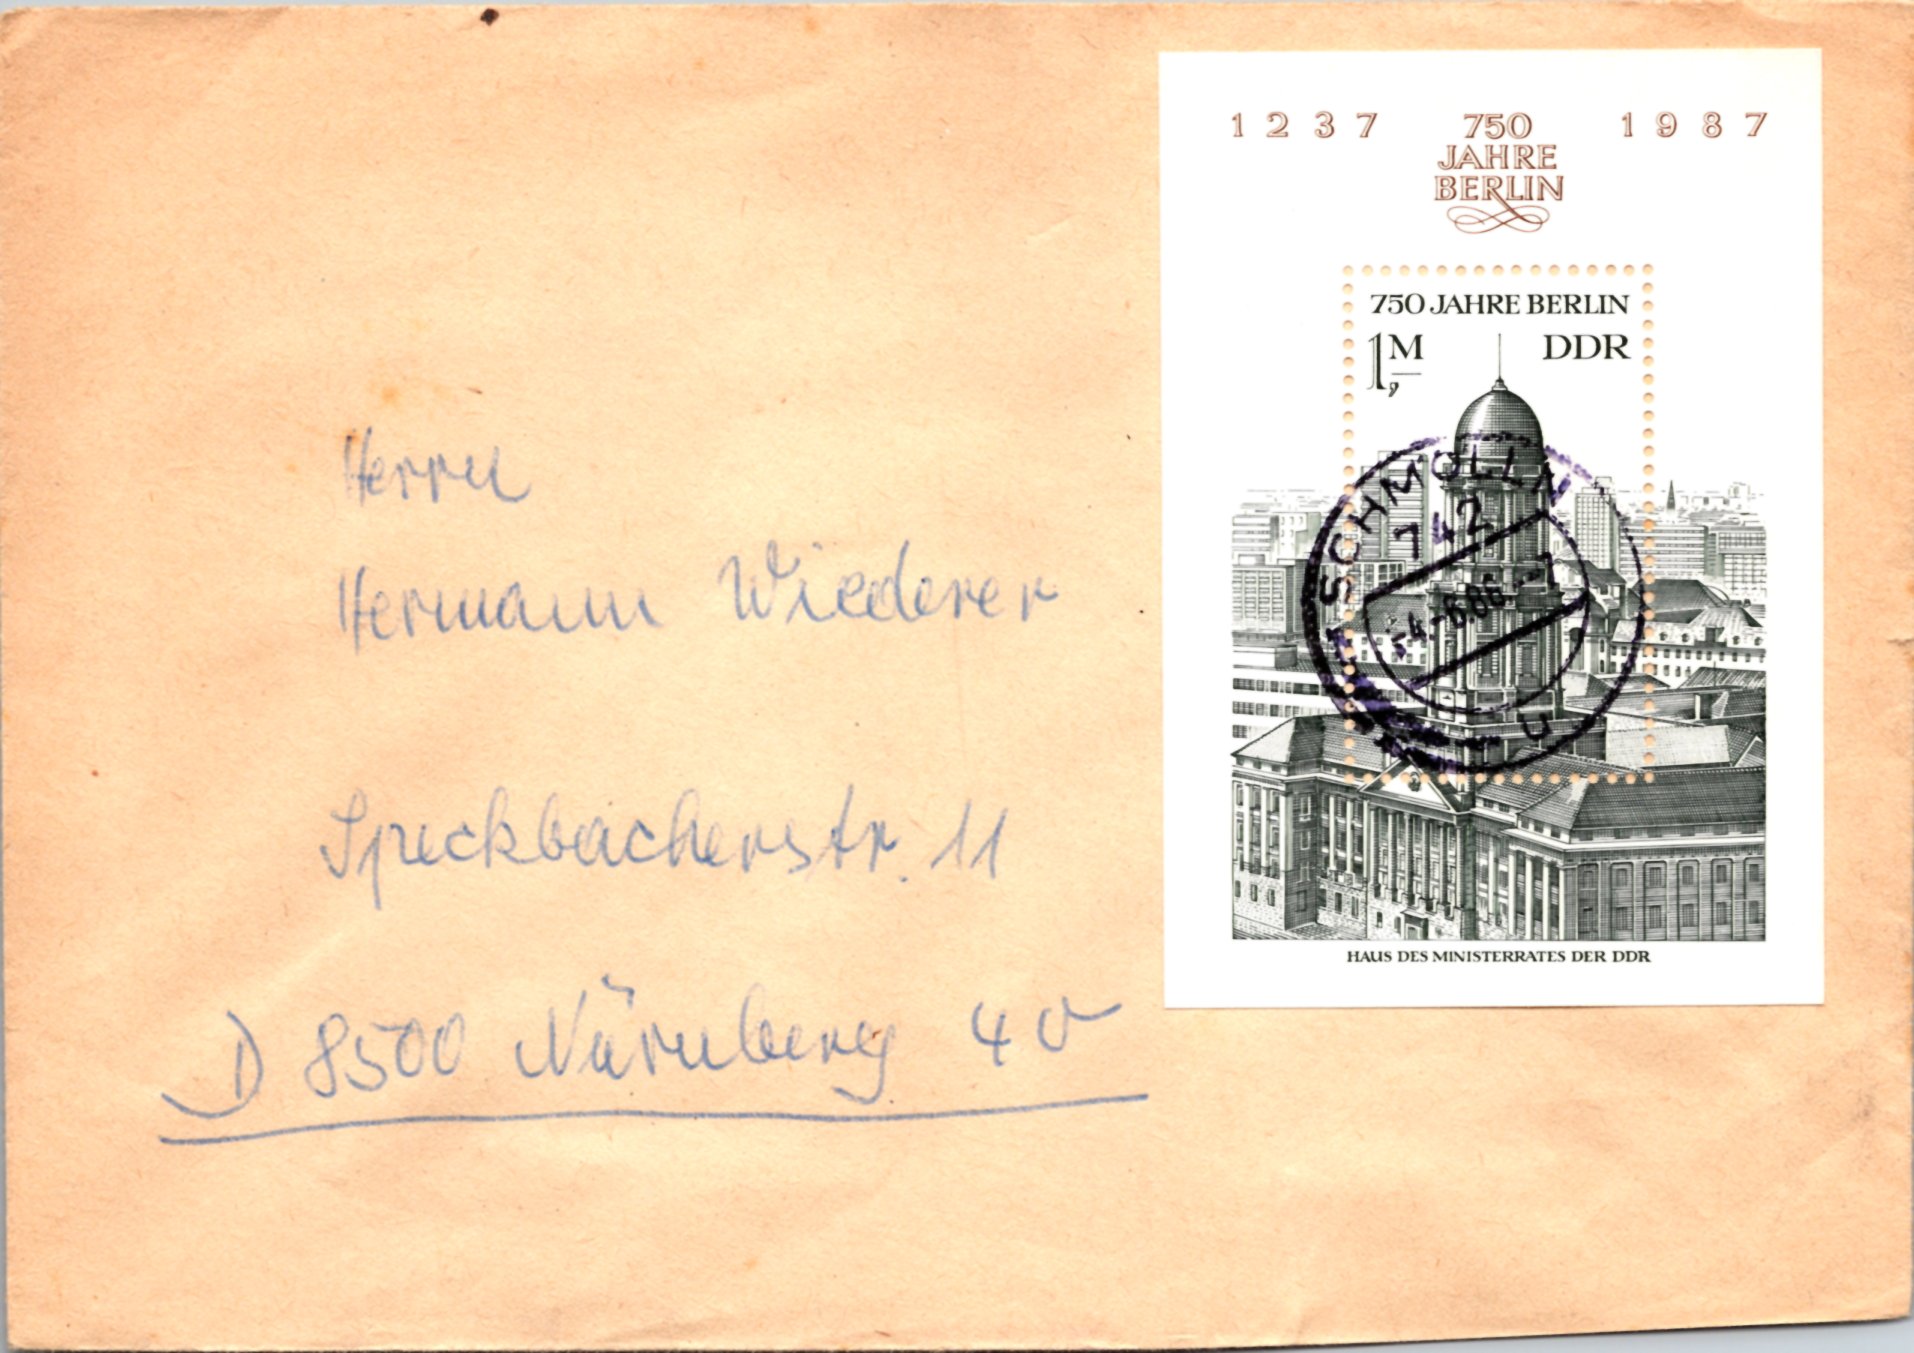 1237 750 1987
JAHRE
BERLIN
750 JAHRE BERLIN
1,M DDR
SCHMÖLLN
742
-4.-6.86.--7
u
HAUS DES MINISTERRATES DER DDR
Herrn
Hermann Wiederer
Speckbacherstr. 11
D 8500 Nürnberg 40